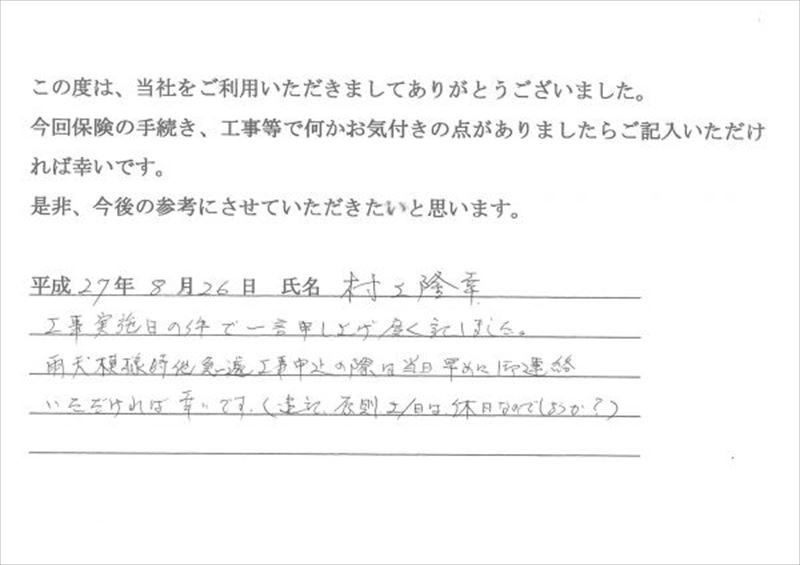 この度は、当社をご利用いただきましてありがとうございました。
今回保険の手続き、工事等で何かお気付きの点がありましたらご記入いただけ
れば幸いです。
是非、今後の参考にさせていただきたいと思います。
平成27年 8月26日 氏名 村上隆幸
工事実施日の件で一言申し上げ度く記しました。
雨天模様時他急遽工事中止の際は当日早めに御連絡
いただければ幸いです。(追記、原則土/日は、休日なのでしょうか?)